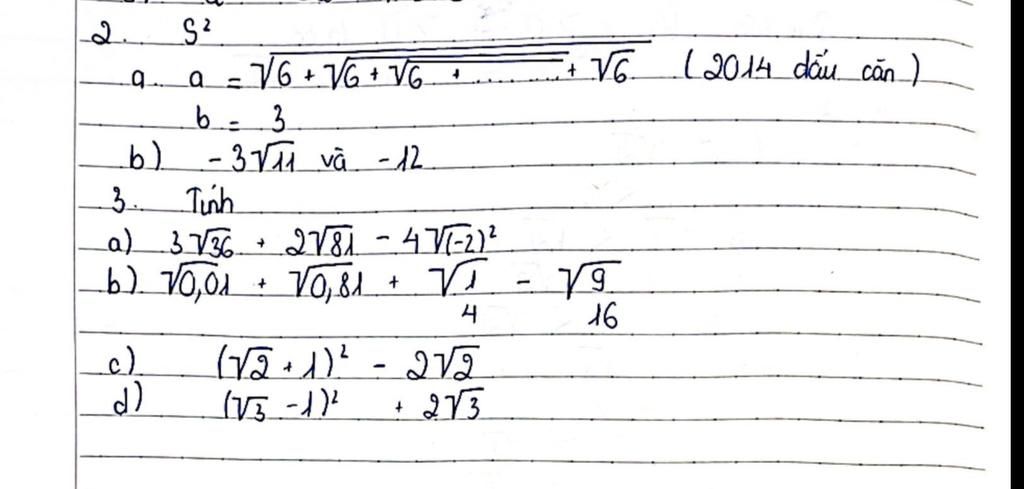 2. S²
a. a = √6 + √6 + √6 + .......... + √6 (2014 dấu căn)
b = 3
b) -3√11 và -12
3. Tính
a) 3√36 + 2√81 - 4√(-2)²
b) √0,01 + √0,81 + √1/4 - √9/16
c) (√2 + 1)² - 2√2
d) (√3 - 1)² + 2√3